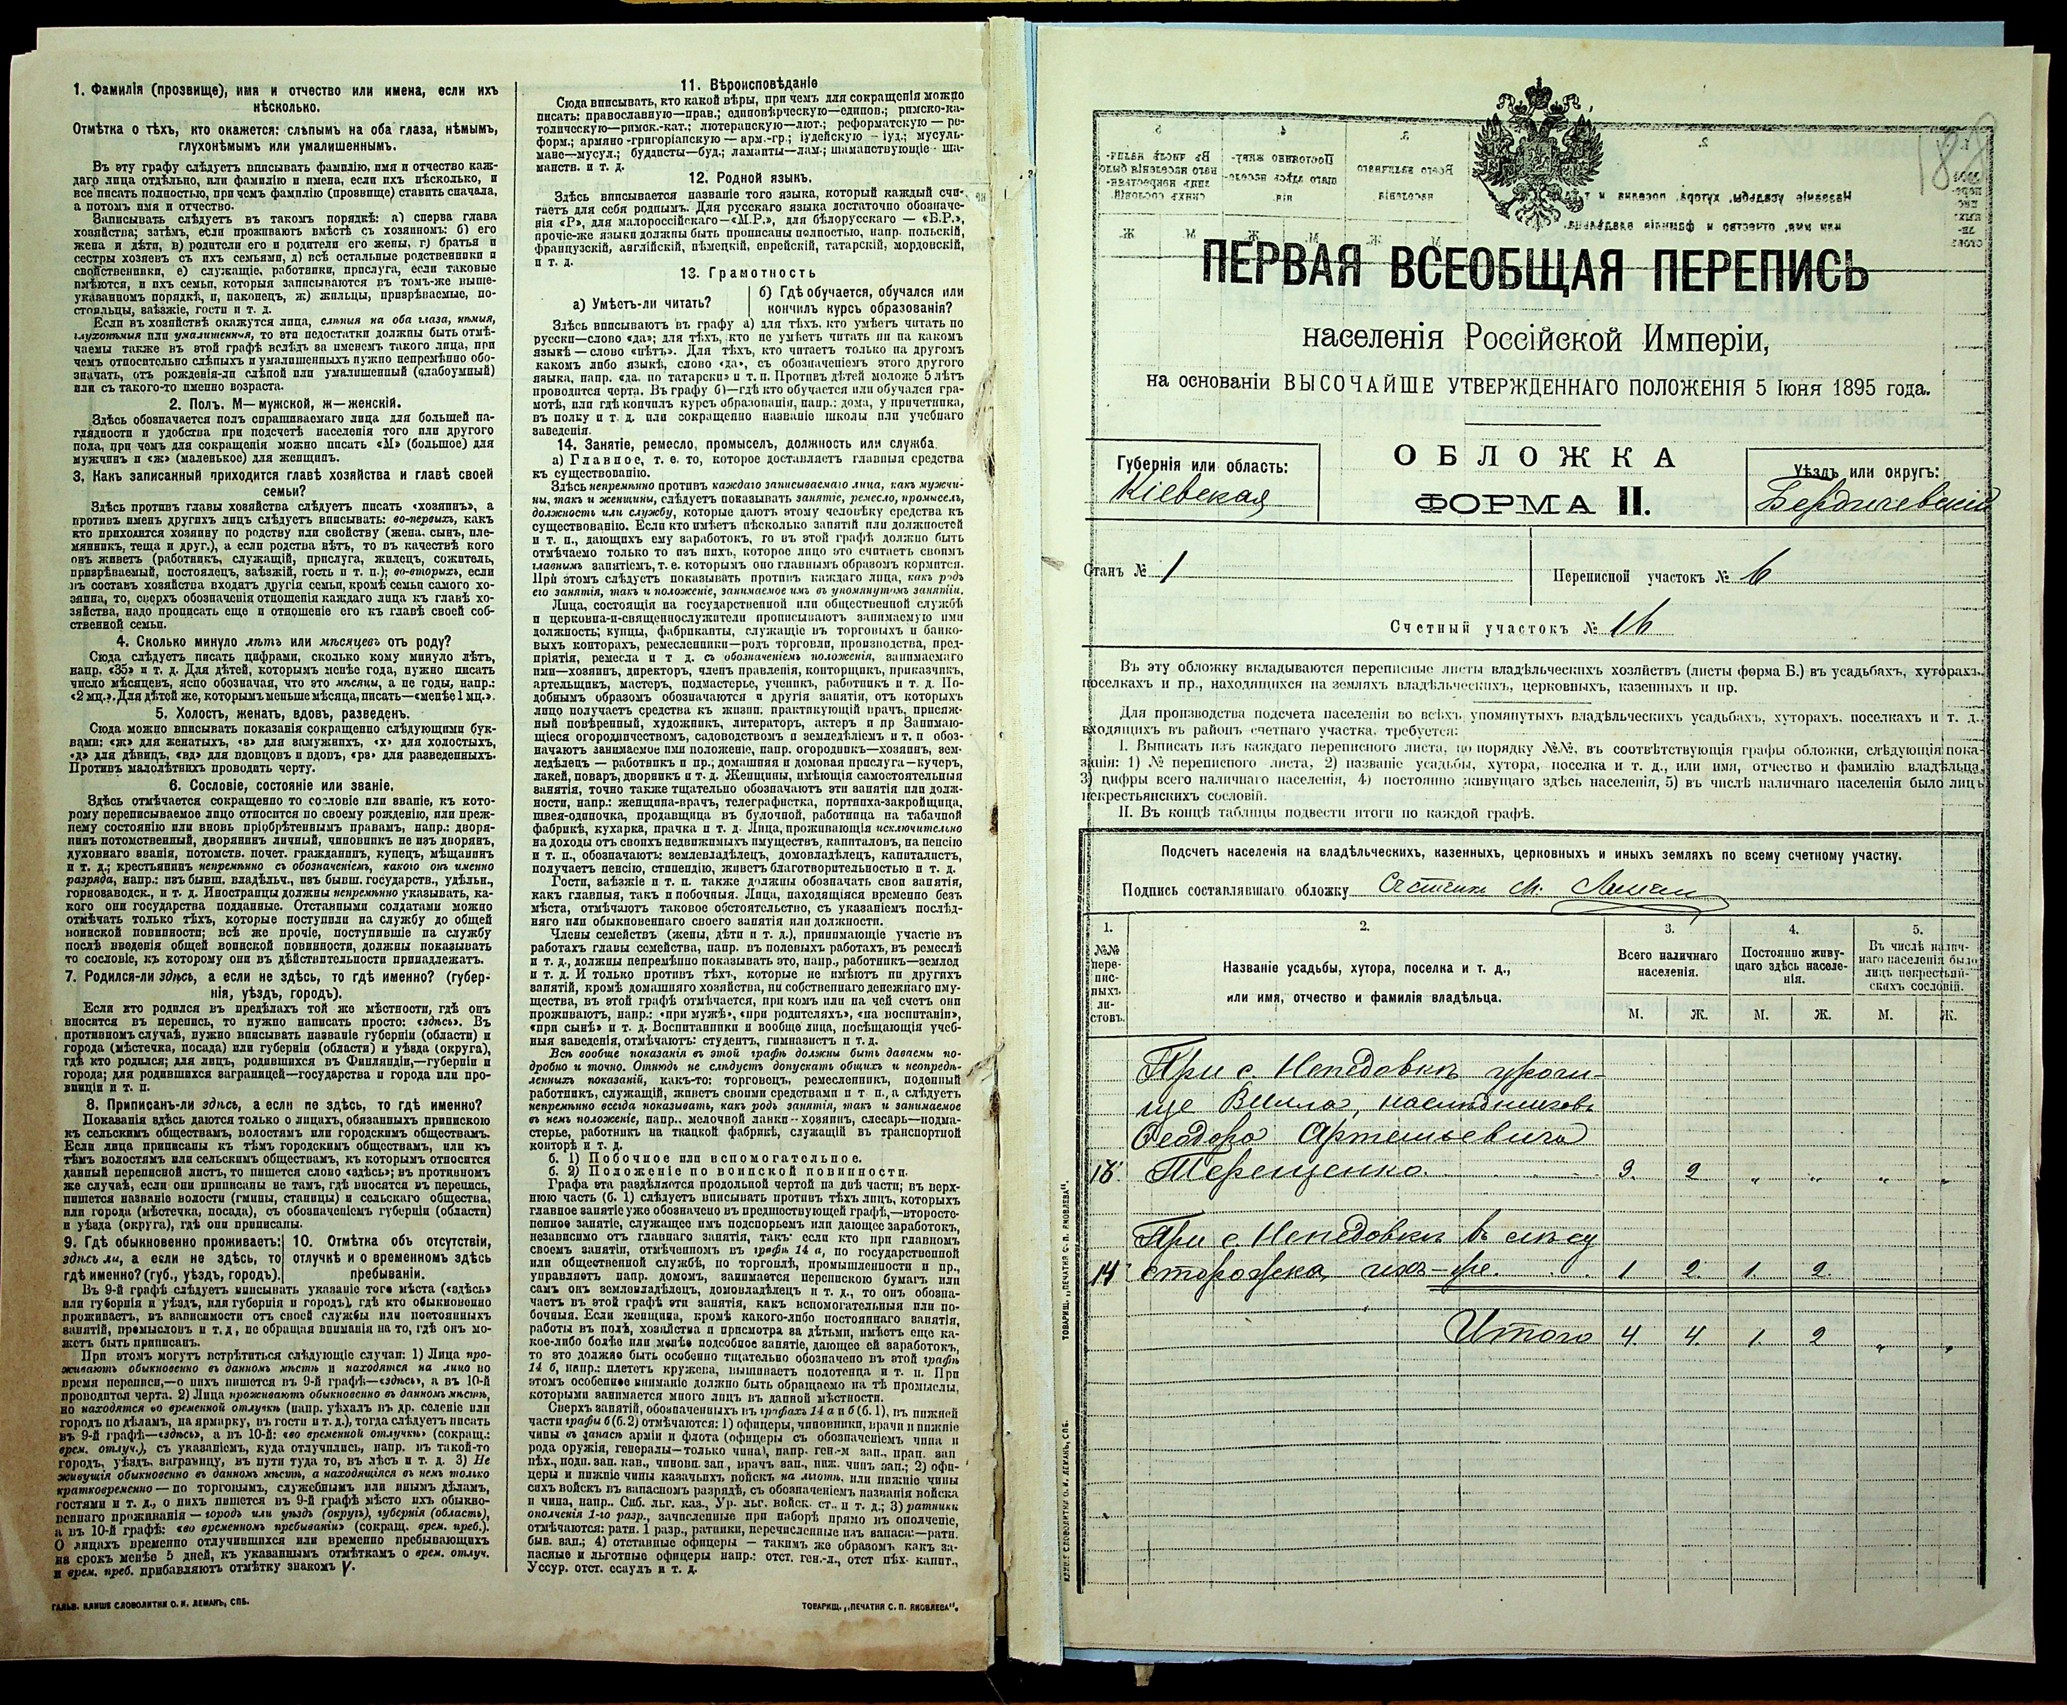 1. Фамилія (прозвище), имя и отчество или имена, если ихъ
нѣсколько.
Отмѣтка о тѣхъ, кто окажется: слѣпымъ на оба глаза, нѣмымъ,
глухонѣмымъ или умалишеннымъ.
Въ эту графу слѣдуетъ вписывать фамилію, имя и отчество каж-
даго лица отдѣльно, или фамилію и имена, если ихъ нѣсколько, и
все писать полностью, при чемъ фамилію (прозвище) ставить сначала,
а потомъ имя и отчество.
Записывать слѣдуетъ въ такомъ порядкѣ: а) сперва глава
хозяйства; затѣмъ, если проживаютъ вмѣстѣ съ хозяиномъ: б) его
жена и дѣти, в) родители его и родители его жены, г) братья и
сестры хозяевъ съ ихъ семьями, д) всѣ остальные родственники и
свойственники, е) служащіе, работники, прислуга, если таковые
имѣются, и ихъ семьи, которыя записываются въ томъ-же выше-
указанномъ порядкѣ, и, наконецъ, ж) жильцы, призрѣваемые, по-
стояльцы, заѣзжіе, гости и т. д.
Если въ хозяйствѣ окажутся лица, слѣпыя на оба глаза, нѣмыя,
глухонѣмыя или умалишенныя, то эти недостатки должны быть отмѣ-
чаемы также въ этой графѣ вслѣдъ за именемъ такого лица, при
чемъ относительно слѣпыхъ и умалишенныхъ нужно непремѣнно обо-
значать, отъ рожденія-ли слѣпой или умалишенный (слабоумный)
или съ такого-то именно возраста.
2. Полъ. М—мужской, ж—женскій.
Здѣсь обозначается полъ спрашиваемаго лица для большей на-
глядности и удобства при подсчетѣ населенія того или другого
пола, при чемъ для сокращенія можно писать «М» (большое) для
мужчинъ и «ж» (маленькое) для женщинъ.
3. Какъ записанный приходится главѣ хозяйства и главѣ своей
семьи?
Здѣсь противъ главы хозяйства слѣдуетъ писать «хозяинъ», а
противъ именъ другихъ лицъ слѣдуетъ вписывать: во-первыхъ, какъ
кто приходится хозяину по родству или свойству (жена, сынъ, пле-
мянникъ, теща и друг.), а если родства нѣтъ, то въ качествѣ кого
онъ живетъ (работникъ, служащій, прислуга, жилецъ, сожитель,
призрѣваемый, постоялецъ, заѣзжій, гость и т. п.); во-вторыхъ, если
въ составъ хозяйства входятъ другія семьи, кромѣ семьи самого хо-
зяина, то, сверхъ обозначенія отношенія каждаго лица къ главѣ хо-
зяйства, надо прописать еще и отношеніе его къ главѣ своей соб-
ственной семьи.
4. Сколько минуло лѣтъ или мѣсяцевъ отъ роду?
Сюда слѣдуетъ писать цифрами, сколько кому минуло лѣтъ,
напр. «35» и т. д. Для дѣтей, которымъ менѣе года, нужно писать
число мѣсяцевъ, ясно обозначая, что это мѣсяцы, а не годы, напр.:
«2 мц.». Для дѣтей же, которымъ меньше мѣсяца, писать—«менѣе 1 мц.».
5. Холостъ, женатъ, вдовъ, разведенъ.
Сюда можно вписывать показанія сокращенно слѣдующими бук-
вами: «ж» для женатыхъ, «з» для замужнихъ, «х» для холостыхъ,
«д» для дѣвицъ, «вд» для вдовцовъ и вдовъ, «рз» для разведенныхъ.
Противъ малолѣтнихъ проводить черту.
6. Сословіе, состояніе или званіе.
Здѣсь отмѣчается сокращенно то сословіе или званіе, къ кото-
рому переписываемое лицо относится по своему рожденію, или преж-
нему состоянію или вновь пріобрѣтеннымъ правамъ, напр.: дворя-
нинъ потомственный, дворянинъ личный, чиновникъ не изъ дворянъ,
духовнаго званія, потомств. почет. гражданинъ, купецъ, мѣщанинъ
и т. д.; крестьянинъ непремѣнно съ обозначеніемъ, какого онъ именно
разряда, напр.: изъ бывш. владѣльч., изъ бывш. государств., удѣльн.,
горнозаводск., и т. д. Иностранцы должны непремѣнно указывать, ка-
кого они государства подданные. Отставными солдатами можно
отмѣчать только тѣхъ, которые поступили на службу до общей
воинской повинности; всѣ же прочіе, поступившіе на службу
послѣ введенія общей воинской повинности, должны показывать
то сословіе, къ которому они въ дѣйствительности принадлежатъ.
7. Родился-ли здѣсь, а если не здѣсь, то гдѣ именно? (губер-
нія, уѣздъ, городъ).
Если кто родился въ предѣлахъ той же мѣстности, гдѣ онъ
вносится въ перепись, то нужно написать просто: «здѣсь». Въ
противномъ случаѣ, нужно вписывать названіе губерніи (области) и
города (мѣстечка, посада) или губерніи (области) и уѣзда (округа),
гдѣ кто родился; для лицъ, родившихся въ Финляндіи,—губерніи и
города; для родившихся заграницей—государства и города или про-
винціи и т. п.
8. Приписанъ-ли здѣсь, а если не здѣсь, то гдѣ именно?
Показанія здѣсь даются только о лицахъ, обязанныхъ припискою
къ сельскимъ обществамъ, волостямъ или городскимъ обществамъ.
Если лица приписаны къ тѣмъ городскимъ обществамъ, или къ
тѣмъ волостямъ или сельскимъ обществамъ, къ которымъ относится
данный переписной листъ, то пишется слово «здѣсь»; въ противномъ
же случаѣ, если они приписаны не тамъ, гдѣ вносятся въ перепись,
пишется названіе волости (гмины, станицы) и сельскаго общества,
или города (мѣстечка, посада), съ обозначеніемъ губерніи (области)
и уѣзда (округа), гдѣ они приписаны.
9. Гдѣ обыкновенно проживаетъ:
здѣсь ли, а если не здѣсь, то
гдѣ именно? (губ., уѣздъ, городъ).
10. Отмѣтка объ отсутствіи,
отлучкѣ и о временномъ здѣсь
пребываніи.
Въ 9-й графѣ слѣдуетъ вписывать указаніе того мѣста («здѣсь»
или губернія и уѣздъ, или губернія и городъ), гдѣ кто обыкновенно
проживаетъ, въ зависимости отъ своей службы или постоянныхъ
занятій, промысловъ и т. д, не обращая вниманія на то, гдѣ онъ мо-
жетъ быть приписанъ.
При этомъ могутъ встрѣтиться слѣдующіе случаи: 1) Лица про-
живаютъ обыкновенно въ данномъ мѣстѣ и находятся на лицо во
время переписи,—о нихъ пишется въ 9-й графѣ—«здѣсь», а въ 10-й
проводится черта. 2) Лица проживаютъ обыкновенно въ данномъ мѣстѣ,
но находятся во временной отлучкѣ (напр. уѣхалъ въ др. селеніе или
городъ по дѣламъ, на ярмарку, въ гости и т. д.), тогда слѣдуетъ писать
въ 9-й графѣ—«здѣсь», а въ 10-й: «во временной отлучкѣ» (сокращ.:
врем. отлуч.), съ указаніемъ, куда отлучились, напр. въ такой-то
городъ, уѣздъ, заграницу, въ пути туда то, въ лѣсъ и т. д. 3) Не
живущія обыкновенно въ данномъ мѣстѣ, а находящіяся въ немъ только
кратковременно — по торговымъ, служебнымъ или инымъ дѣламъ,
гостями и т. д., о нихъ пишется въ 9-й графѣ мѣсто ихъ обыкно-
веннаго проживанія — городъ или уѣздъ (округъ), губернія (область),
а въ 10-й графѣ: «во временномъ пребываніи» (сокращ. врем. преб.).
О лицахъ временно отлучившихся или временно пребывающихъ
на срокъ менѣе 5 дней, къ указаннымъ отмѣткамъ о врем. отлуч.
и врем. преб. прибавляютъ отмѣтку знакомъ V.
ГАЛЬВ. КЛИШЕ СЛОВОЛИТНИ О. И. ЛЕМАНЪ, СПБ.
11. Вѣроисповѣданіе
Сюда вписывать, кто какой вѣры, при чемъ для сокращенія можно
писать: православную—прав.; единовѣрческую—единов.; римско-ка-
толическую—римск.-кат.; лютеранскую—лют.; реформатскую — ре-
форм.; армяно-григоріанскую — арм.-гр.; іудейскую — іуд.; мусуль-
мане—мусул.; буддисты—буд.; ламаиты—лам.; шаманствующіе - ша-
манств. и т. д.
12. Родной языкъ.
Здѣсь вписывается названіе того языка, который каждый счи-
таетъ для себя роднымъ. Для русскаго языка достаточно обозначе-
нія «Р», для малороссійскаго—«М.Р.», для бѣлорусскаго — «Б.Р.»,
прочіе-же языки должны быть прописаны полностью, напр. польскій,
французскій, англійскій, нѣмецкій, еврейскій, татарскій, мордовскій,
и т. д.
13. Грамотность
а) Умѣетъ-ли читать?
б) Гдѣ обучается, обучался или
кончилъ курсъ образованія?
Здѣсь вписываютъ въ графу а) для тѣхъ, кто умѣетъ читать по
русски—слово «да»; для тѣхъ, кто не умѣетъ читать ни на какомъ
языкѣ — слово «нѣтъ». Для тѣхъ, кто читаетъ только на другомъ
какомъ либо языкѣ, слово «да», съ обозначеніемъ этого другого
языка, напр. «да, по татарски» и т. п. Противъ дѣтей моложе 5 лѣтъ
проводится черта. Въ графу б)—гдѣ кто обучается или обучался гра-
мотѣ, или гдѣ кончилъ курсъ образованія, напр.: дома, у причетника,
въ полку и т. д. или сокращенно названіе школы или учебнаго
заведенія.
14. Занятіе, ремесло, промыселъ, должность или служба
а) Главное, т. е. то, которое доставляетъ главныя средства
къ существованію.
Здѣсь непремѣнно противъ каждаго записываемаго лица, какъ мужчи-
ны, такъ и женщины, слѣдуетъ показывать занятіе, ремесло, промыселъ,
должность или службу, которые даютъ этому человѣку средства къ
существованію. Если кто имѣетъ нѣсколько занятій или должностей
и т. п., дающихъ ему заработокъ, то въ этой графѣ должно быть
отмѣчаемо только то изъ нихъ, которое лицо это считаетъ своимъ
главнымъ занятіемъ, т. е. которымъ оно главнымъ образомъ кормится.
При этомъ слѣдуетъ показывать противъ каждаго лица, какъ родъ
его занятія, такъ и положеніе, занимаемое имъ въ упомянутомъ занятіи.
Лица, состоящія на государственной или общественной службѣ
и церковно-и-священнослужители прописываютъ занимаемую ими
должность; купцы, фабриканты, служащіе въ торговыхъ и банко-
выхъ конторахъ, ремесленники—родъ торговли, производства, пред-
пріятія, ремесла и т д. съ обозначеніемъ положенія, занимаемаго
ими—хозяинъ, директоръ, членъ правленія, конторщикъ, приказчикъ,
артельщикъ, мастеръ, подмастерье, ученикъ, работникъ и т. д. По-
добнымъ образомъ обозначаются и другія занятія, отъ которыхъ
лицо получаетъ средства къ жизни: практикующій врачъ, присяж-
ный повѣренный, художникъ, литераторъ, актеръ и пр Занимаю-
щіеся огородничествомъ, садоводствомъ и земледѣліемъ и т. п обоз-
начаютъ занимаемое ими положеніе, напр. огородникъ—хозяинъ, зем-
ледѣлецъ — работникъ и пр.; домашняя и домовая прислуга—кучеръ,
лакей, поваръ, дворникъ и т. д. Женщины, имѣющія самостоятельныя
занятія, точно также тщательно обозначаютъ эти занятія или долж-
ности, напр.: женщина-врачъ, телеграфистка, портниха-закройщица,
швея-одиночка, продавщица въ булочной, работница на табачной
фабрикѣ, кухарка, прачка и т. д. Лица, проживающія исключительно
на доходы отъ своихъ недвижимыхъ имуществъ, капиталовъ, на пенсію
и т. п., обозначаютъ: землевладѣлецъ, домовладѣлецъ, капиталистъ,
получаетъ пенсію, стипендію, живетъ благотворительностью и т. д.
Гости, заѣзжіе и т. п. также должны обозначать свои занятія,
какъ главныя, такъ и побочныя. Лица, находящіяся временно безъ
мѣста, отмѣчаютъ таковое обстоятельство, съ указаніемъ послѣд-
няго или обыкновеннаго своего занятія или должности.
Члены семействъ (жены, дѣти и т. д.), принимающіе участіе въ
работахъ главы семейства, напр. въ полевыхъ работахъ, въ ремеслѣ
и т. д., должны непремѣнно показывать это, напр., работникъ—землед
и т. д. И только противъ тѣхъ, которые не имѣютъ ни другихъ
занятій, кромѣ домашняго хозяйства, ни собственнаго денежнаго иму-
щества, въ этой графѣ отмѣчается, при комъ или на чей счетъ они
проживаютъ, напр.: «при мужѣ», «при родителяхъ», «на воспитаніи»,
«при сынѣ» и т. д. Воспитанники и вообще лица, посѣщающія учеб-
ныя заведенія, отмѣчаютъ: студентъ, гимназистъ и т. д.
Всѣ вообще показанія въ этой графѣ должны быть даваемы по-
дробно и точно. Отнюдь не слѣдуетъ допускать общихъ и неопредѣ-
ленныхъ показаній, какъ-то: торговецъ, ремесленникъ, поденный
работникъ, служащій, живетъ своими средствами и т п., а слѣдуетъ
непремѣнно всегда показывать, какъ родъ занятія, такъ и занимаемое
въ немъ положеніе, напр., мелочной лавки — хозяинъ, слесарь—подма-
стерье, работникъ на ткацкой фабрикѣ, служащій въ транспортной
конторѣ и т. д.
б. 1) Побочное или вспомогательное.
б. 2) Положеніе по воинской повинности.
Графа эта раздѣляется продольной чертой на двѣ части; въ верх-
нюю часть (б. 1) слѣдуетъ вписывать противъ тѣхъ лицъ, которыхъ
главное занятіе уже обозначено въ предшествующей графѣ,—второсте-
пенное занятіе, служащее имъ подспорьемъ или дающее заработокъ,
независимо отъ главнаго занятія, такъ: если кто при главномъ
своемъ занятіи, отмѣченномъ въ графѣ 14 а, по государственной
или общественной службѣ, по торговлѣ, промышленности и пр.,
управляетъ напр. домомъ, занимается перепискою бумагъ или
самъ онъ землевладѣлецъ, домовладѣлецъ и т. д., то онъ обозна-
чаетъ въ этой графѣ эти занятія, какъ вспомогательныя или по-
бочныя. Если женщина, кромѣ какого-либо постояннаго занятія,
работы въ полѣ, хозяйства и присмотра за дѣтьми, имѣетъ еще ка-
кое-либо болѣе или менѣе подсобное занятіе, дающее ей заработокъ,
то это должно быть особенно тщательно обозначено въ этой графѣ
14 б, напр.: плететъ кружева, вышиваетъ полотенца и т. п. При
этомъ особенное вниманіе должно быть обращаемо на тѣ промыслы,
которыми занимается много лицъ въ данной мѣстности.
Сверхъ занятій, обозначенныхъ въ графахъ 14 а и б (б. 1), въ нижней
части графы б (б. 2) отмѣчаются: 1) офицеры, чиновники, врачи и нижніе
чины въ запасѣ арміи и флота (офицеры съ обозначеніемъ чина и
рода оружія, генералы—только чина), напр. ген.-м зап., прап. зап
пѣх., подп. зап. кав., чиновн. зап , врачъ зап., ниж. чинъ зап.; 2) офи-
церы и нижніе чины казачьихъ войскъ на льготѣ, или нижніе чины
сихъ войскъ въ запасномъ разрядѣ, съ обозначеніемъ названія войска
и чина, напр., Сиб. льг. каз., Ур. льг. войск. ст., и т. д.; 3) ратники
ополченія 1-го разр., зачисленные при наборѣ прямо въ ополченіе,
отмѣчаются: ратн. 1 разр., ратники, перечисленные изъ запаса:—ратн.
быв. зап.; 4) отставные офицеры — такимъ же образомъ какъ за-
пасные и льготные офицеры напр.: отст. ген.-л., отст пѣх. капит.,
Уссур. отст. есаулъ и т. д.
ТОВАРИЩ. „ПЕЧАТНЯ С. П. ЯКОВЛЕВА".
ПЕРВАЯ ВСЕОБЩАЯ ПЕРЕПИСЬ
населенія Россійской Имперіи,
на основаніи ВЫСОЧАЙШЕ УТВЕРЖДЕННАГО ПОЛОЖЕНІЯ 5 Іюня 1895 года.
Губернія или область:
Кіевская
ОБЛОЖКА
ФОРМА II.
Уѣздъ или округъ:
Бердичевскій
Станъ № 1
Переписной участокъ № 6
Счетный участокъ № 16
Въ эту обложку вкладываются переписные листы владѣльческихъ хозяйствъ (листы форма Б.) въ усадьбахъ, хуторахъ,
поселкахъ и пр., находящихся на земляхъ владѣльческихъ, церковныхъ, казенныхъ и пр.
Для производства подсчета населенія во всѣхъ упомянутыхъ владѣльческихъ усадьбахъ, хуторахъ, поселкахъ и т. д.,
входящихъ въ районъ счетнаго участка, требуется:
I. Выписать изъ каждаго переписного листа, по порядку №№, въ соотвѣтствующія графы обложки, слѣдующія пока-
занія: 1) № переписного листа, 2) названіе усадьбы, хутора, поселка и т. д., или имя, отчество и фамилію владѣльца,
3) цифры всего наличнаго населенія, 4) постоянно живущаго здѣсь населенія, 5) въ числѣ наличнаго населенія было лицъ
некрестьянскихъ сословій.
II. Въ концѣ таблицы подвести итоги по каждой графѣ.
Подсчетъ населенія на владѣльческихъ, казенныхъ, церковныхъ и иныхъ земляхъ по всему счетному участку.
Подпись составлявшаго обложку Счетчикъ М.
1. 2. 3. 4. 5.
№№ перепис-ныхъ ли-стовъ.
Названіе усадьбы, хутора, поселка и т. д.,
или имя, отчество и фамилія владѣльца.
Всего наличнаго населенія.
Постоянно живу-щаго здѣсь населе-нія.
Въ числѣ налич-наго населенія было лицъ некрестьян-скихъ сословій.
М. Ж. М. Ж. М. Ж.
При с. Непедовкѣ урочи-
ще Вилла, наслѣдниковъ
Ѳеодора Артемьевича
18. Терещенко. 3. 2 „ „ „ „
При с. Непедовкѣ въ лѣсу
14 сторожка, ихъ-же. 1 2. 1. 2.
Итого 4. 4. 1. 2 „ „
КЛИШЕ СЛОВОЛИТНИ О. И. ЛЕМАНЪ, СПБ.
ТОВАРИЩ. „ПЕЧАТНЯ С. П. ЯКОВЛЕВА".